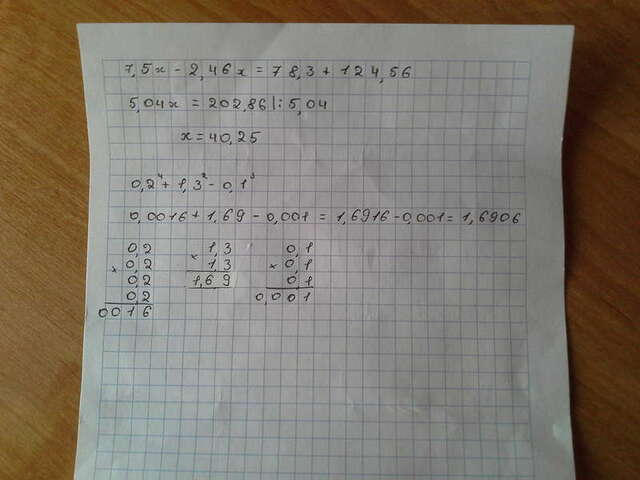 7,5x - 2,46x = 78,3 + 124,56
5,04x = 202,86 |: 5,04
x = 40,25
0,2⁴ + 1,3² - 0,1³
0,0016 + 1,69 - 0,001 = 1,6916 - 0,001 = 1,6906
0,2 1,3 0,1
× 0,2 × 1,3 × 0,1
0,2 1,69 0,1
0,2 0,0001
0016